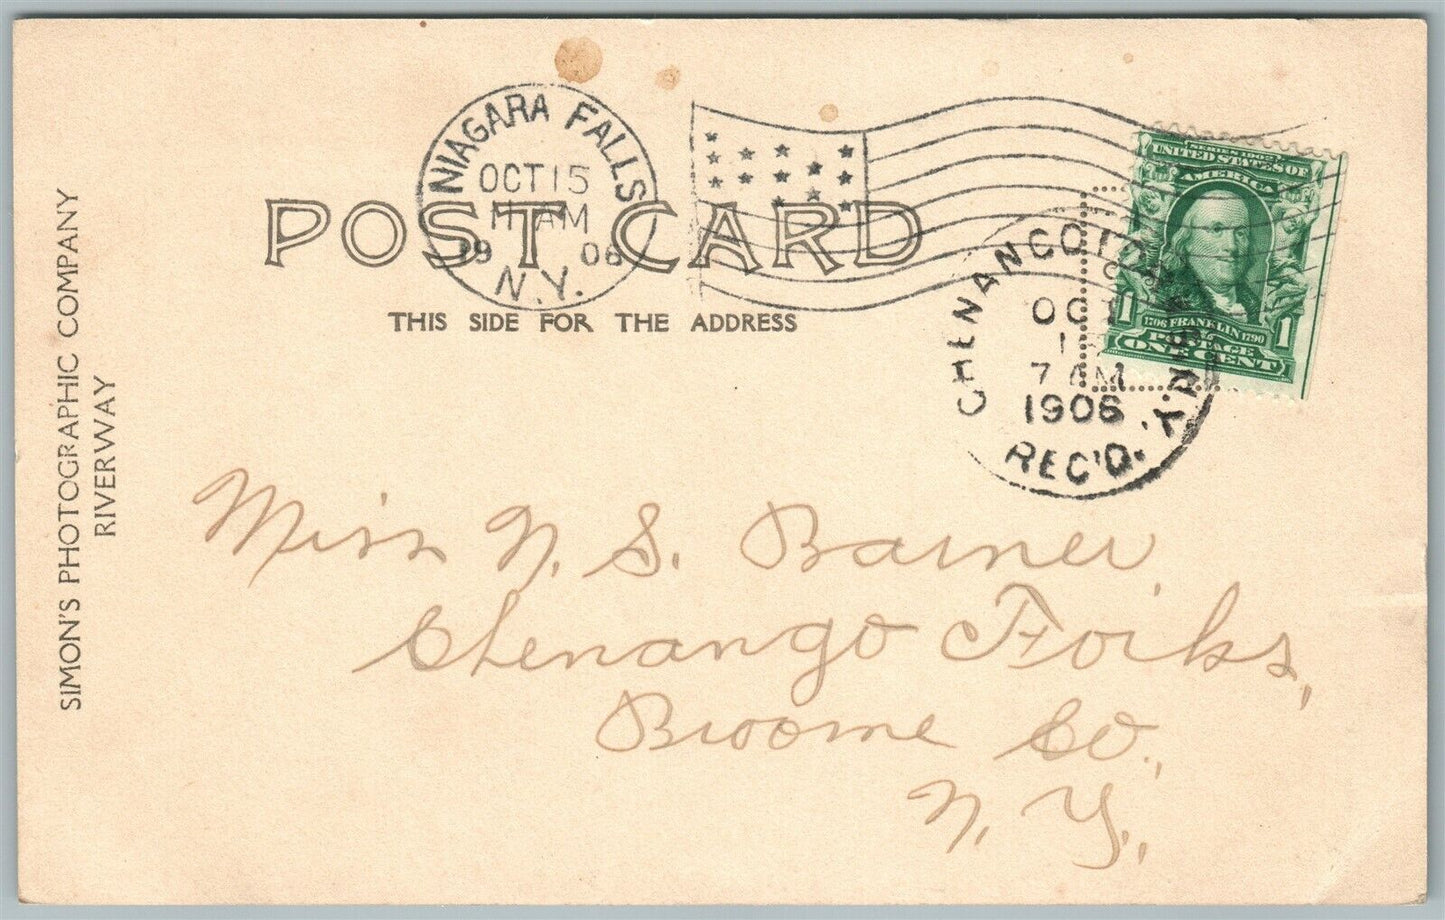 NIAGARA FALLS
OCT 15
11 AM
1906
N.Y.
SERIES 1902
UNITED STATES OF
AMERICA
1706 FRANKLIN 1790
POSTAGE
1 ONE CENT 1
POST CARD
THIS SIDE FOR THE ADDRESS
CHENANGO FORKS
OCT
7 AM
1906
N.Y.
REC'D.
SIMON'S PHOTOGRAPHIC COMPANY
RIVERWAY
Miss N. S. Barner,
Chenango Forks,
Broome Co.,
N. Y.,